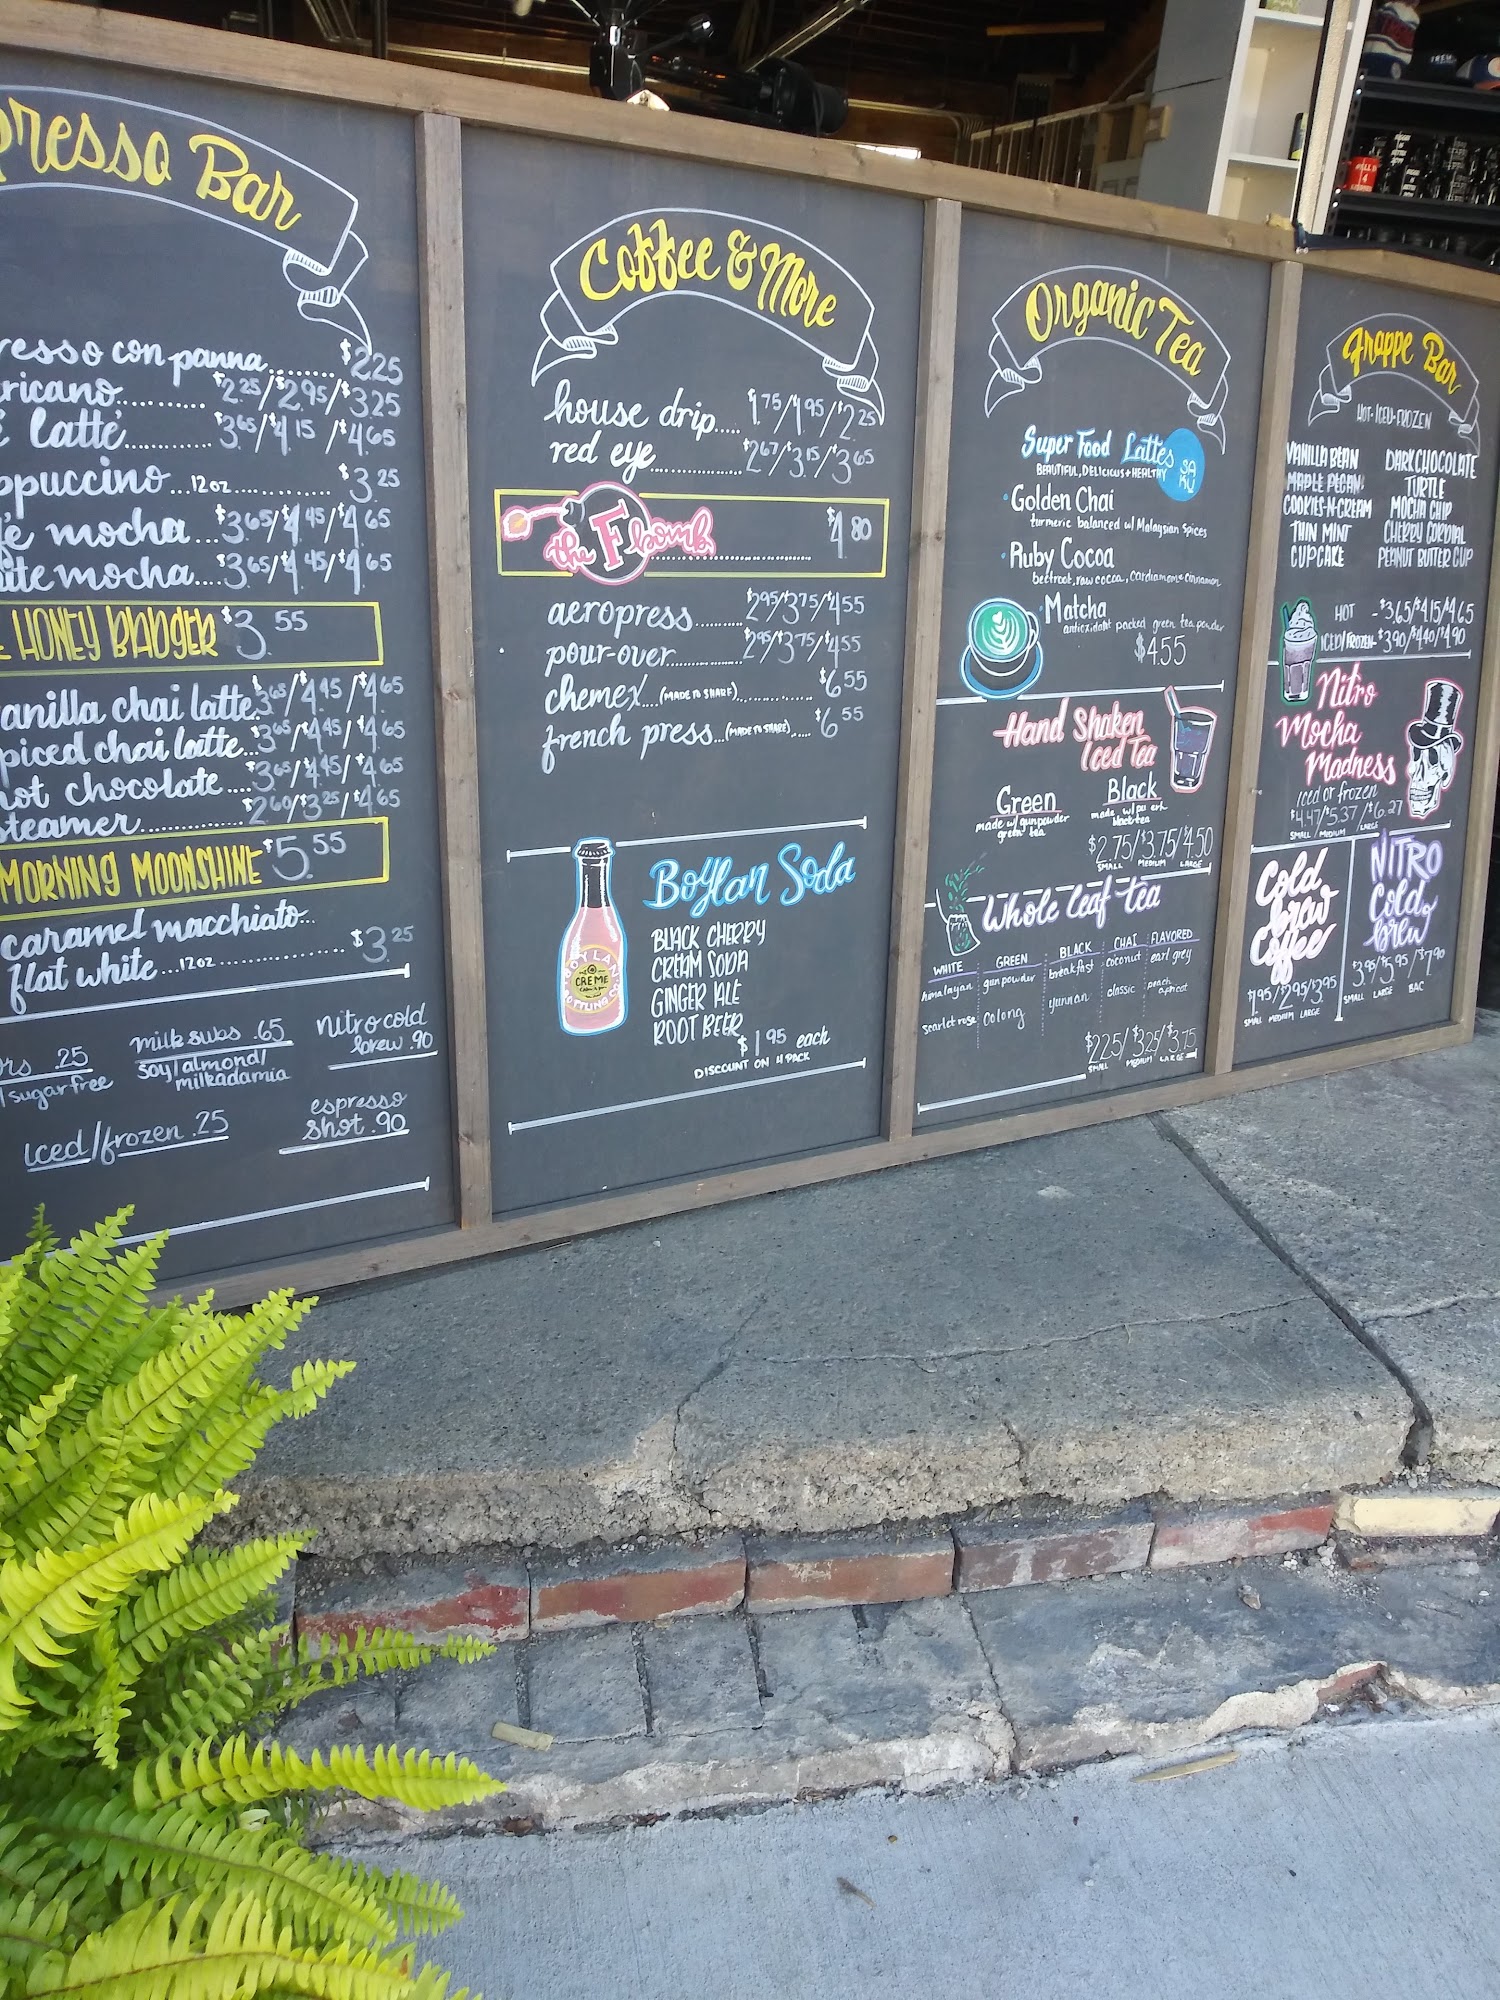 presso Bar
resso con panna........ $2.25
ricano............ $2.25/$2.95/$3.25
latté............ $3.65/$4.15/$4.65
ppuccino...12oz............. $3.25
mocha $3.65/$4.45/$4.65
ite mocha.... $3.65/$4.45/$4.65
HONEY BADGER $3.55
anilla chai latte. $3.65/$4.45/$4.65
piced chai latte... $3.65/$4.45/$4.65
hot chocolate .... $3.65/$4.45/$4.65
steamer............... $2.60/$3.25/$4.65
MORNING MOONSHINE $5.55
caramel macchiato...
flat white...12oz.................. $3.25
rs .25
/sugar free
milk subs .65
soy/almond/
milkadamia
nitro cold
brew .90
iced/frozen .25
espresso
shot .90
Coffee & More
house drip..... $1.75/$1.95/$2.25
red eye............... $2.67/$3.15/$3.65
the F bomb $4.80
aeropress.......... $2.95/$3.75/$4.55
pour-over................ $2.95/$3.75/$4.55
chemex....(MADE TO SHARE)............. $6.55
french press...(MADE TO SHARE)..... $6.55
BOYLAN
CREME
BOTTLING CO.
Boylan Soda
BLACK CHERRY
CREAM SODA
GINGER ALE
ROOT BEER
$1.95 each
DISCOUNT ON 4 PACK
Organic Tea
Super Food Lattes
BEAUTIFUL, DELICIOUS + HEALTHY
SA
KU
Golden Chai
turmeric balanced w/ Malaysian Spices
Ruby Cocoa
beetroot, raw cocoa, cardiamom & cinnamon
Matcha
antioxidant packed green tea powder
$4.55
Hand Shaken
Iced Tea
Green
made w/ gunpowder
green tea
Black
made w/
black tea
$2.75/$3.75/$4.50
SMALL MEDIUM LARGE
Whole leaf tea
WHITE GREEN BLACK CHAI FLAVORED
himalayan gunpowder breakfast coconut earl grey
scarlet rose oolong yunnan classic peach apricot
$2.25/$3.25/$3.75
SMALL MEDIUM LARGE
Frappe Bar
HOT-ICED-FROZEN
VANILLA BEAN DARK CHOCOLATE
MAPLE PECAN TURTLE
COOKIES-N-CREAM MOCHA CHIP
THIN MINT CHERRY CORDIAL
CUPCAKE PEANUT BUTTER CUP
HOT - $3.65/$4.15/$4.65
ICED/FROZEN- $3.90/$4.40/$4.90
Nitro
Mocha
Madness
iced or frozen
$4.47/$5.37/$6.27
SMALL / MEDIUM / LARGE
Cold
brew
Coffee
$1.95/$2.95/$3.95
SMALL MEDIUM LARGE
NITRO
Cold
brew
$3.95/$5.95/$7.90
SMALL LARGE BAC